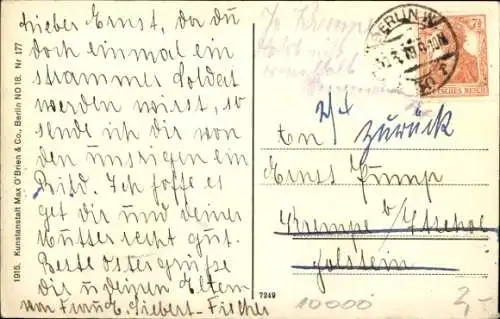 Lieber Ernst, da du
doch einmal ein
strammer Soldat
werden wirst, so
sende ich dir von
den unsrigen ein
Bild. Ich hoffe es
geht dir und deiner
Mutter recht gut.
Beste Ostergrüße
dir u deinen Eltern
von Frau E. Siebert-Fischer
1915. Kunstanstalt Max O'Brien & Co., Berlin NO 18. Nr 177
In Krempe
BERLIN W
7½
DEUTSCHES REICH
zurück
An
Ernst Pump
Krempe b/Itzehoe
Holstein
7249
10000
2,-